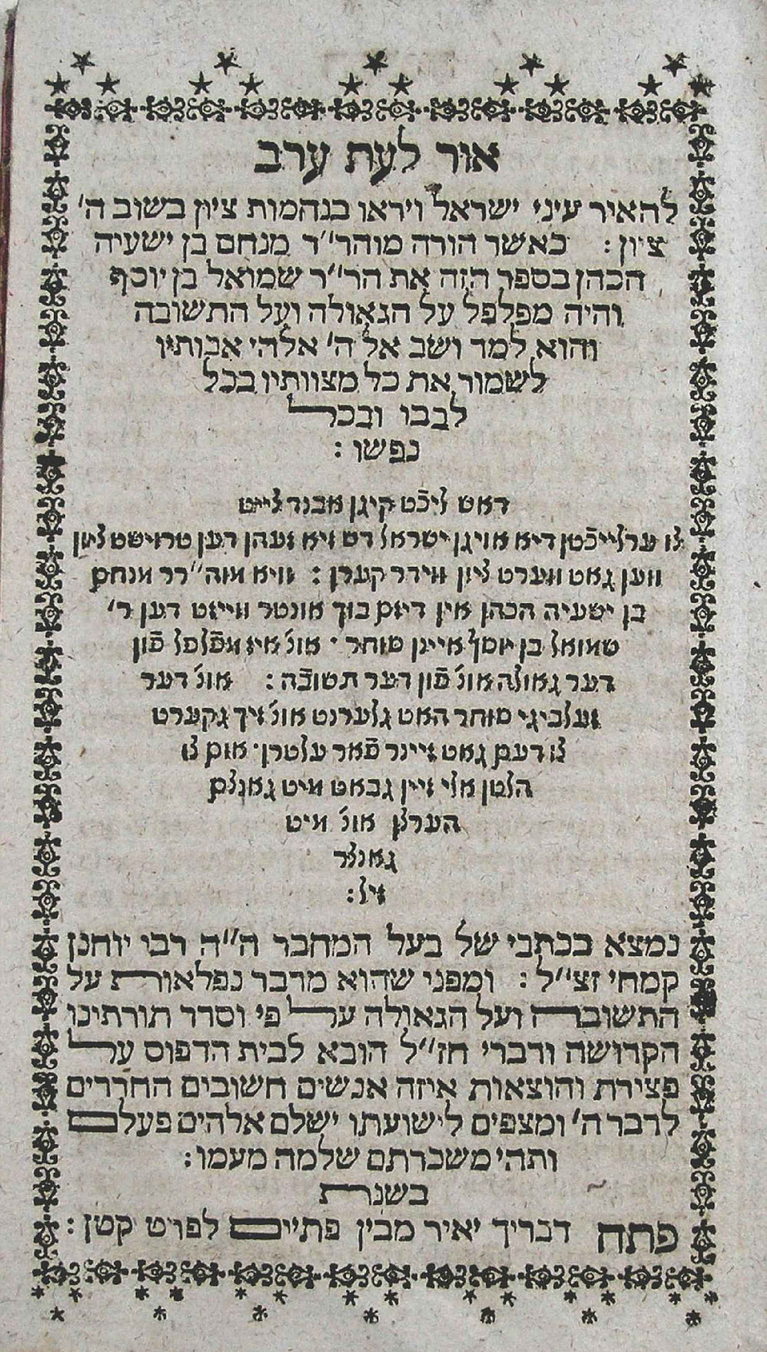 אור לעת ערב
להאיר עיני ישראל ויראו בנחמות ציון בשוב ה'
ציון : כאשר הורה מוהר״ד מנחם בן ישעיה
הכהן בספר הזה את הר״ר שמואל בן יוסף
והיה מפלפל על הגאולה ועל התשובה
והוא למד ושב אל ה' אלהי אבותיו
לשמור את כל מצוותיו בכל
לבבו ובכל
נפשו :
דאש ליכֿט קיגן אבנד צייט
צו ערלייכֿטן דיא אויגן ישראל דש זיא זעהן דען טרוישט ציון
ווען גאט ווערט ציון ווידר קערן : וויא מוה״רר מנחם
בן ישעיה הכהן אין דיזם בוך אונטר ווייזט דען ר'
שמואל בן יוסף איינן סוחר · אונ' איז מפלפל פֿון
דער גאולה אונ' פֿון דער תשובֿה : אונ' דער
זעלביגי סוחר האט גלערנט אונ' זיך גקערט
צו דעם גאט זיינר פֿאר עלטרן · אום צו
הלטן אלי זיין גבאט מיט גאנצם
הערצן אונ' מיט
גאנצר
זיל :
נמצא בכתבי של בעל המחבר ה״ה רבי יוחנן
קמחי זצ״ל : ומפני שהוא מדבר נפלאות על
התשובה ועל הגאולה על פי וסדר תורתינו
הקדושה ודברי חז״ל הובא לבית הדפוס על
פצירת והוצאות איזה אנשים חשובים החרדים
לדבר ה' ומצפים לישועתו ישלם אלהים פעלם
ותהי משכרתם שלמה מעמו :
בשנת
פתח דבריך יאיר מבין פתיים לפרט קטן :